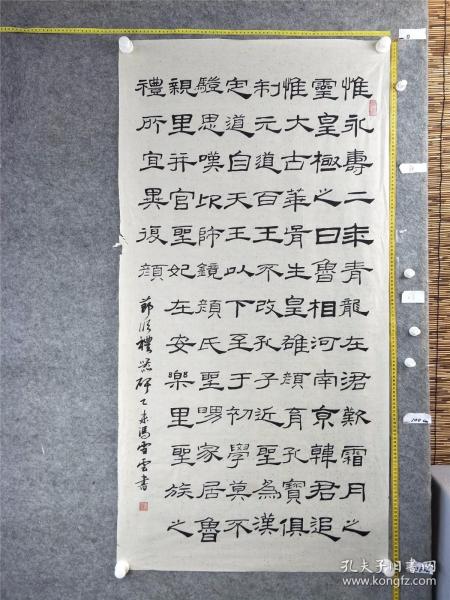 惟永壽二年青龍在涒歎霜月之
靈皇極之日魯相河南京韓君追
惟大古華胥生皇雄顏育孔寶俱
制元道百王不改孔子近聖為漢
定道自天王以下至于初學莫不
驥思嘆卬師鏡顏氏聖舅家居魯
親里并官聖妃在安樂里聖族之
禮所宜異復顏
節臨禮器碑乙未馮雪雲書
孔夫子旧书网
www.kongfz.com